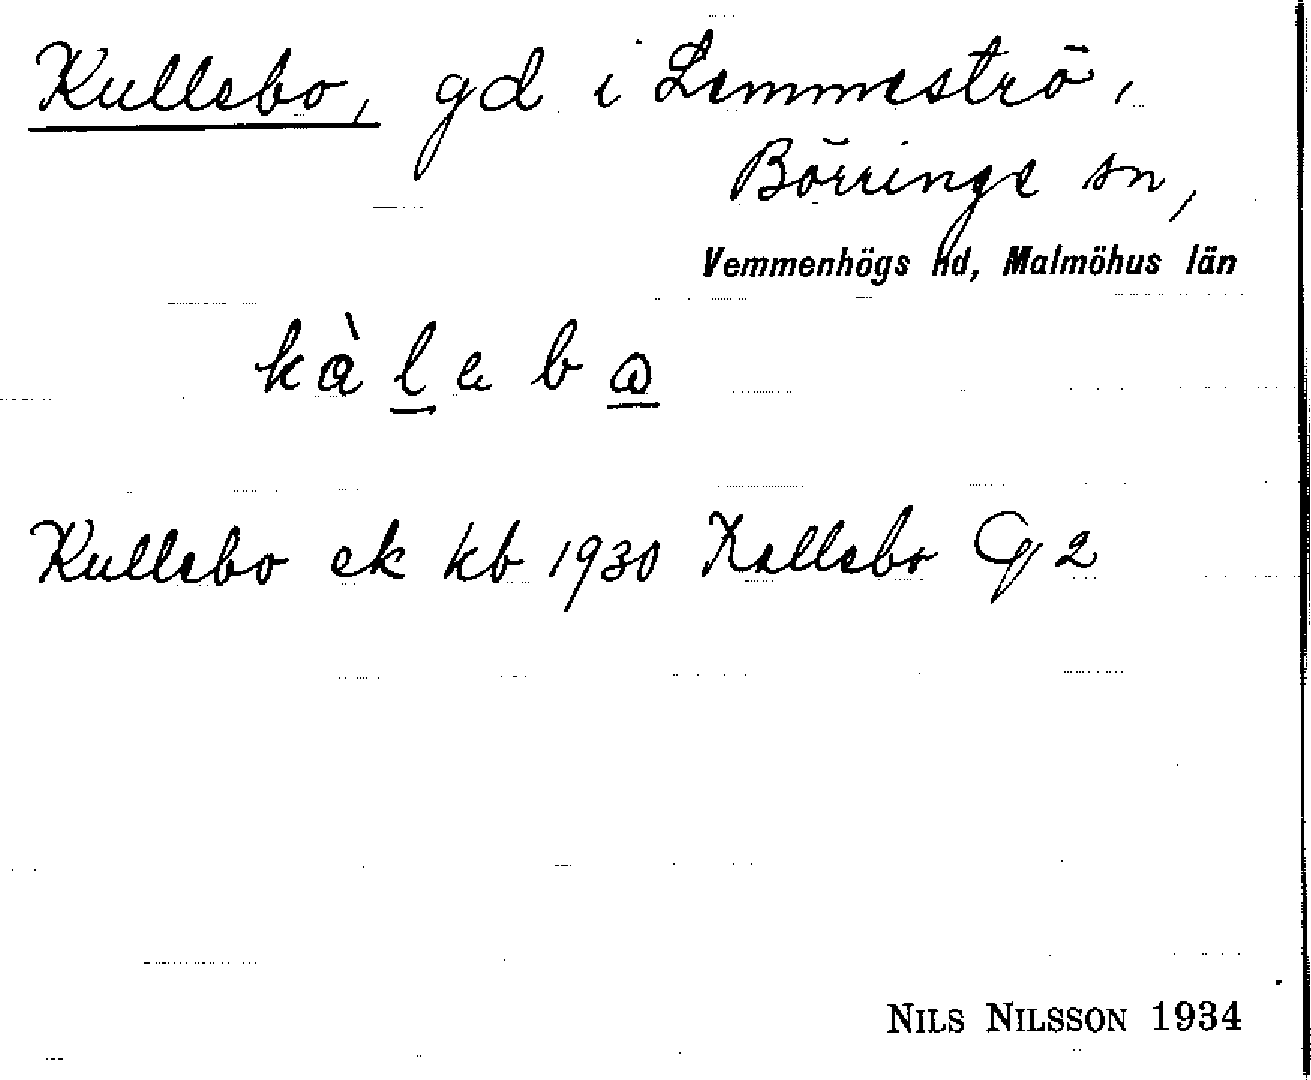 Kullebo, gd i Lemmeströ,
Börringe sn,
Vemmenhögs hd, Malmöhus län
kàlebo
Kullebo ek kb 1930 Kallebo G 2
NILS NILSSON 1934